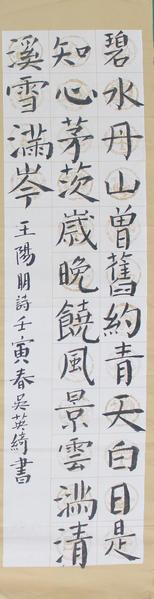 碧水丹山曾舊約青天白日是
知心茅茨歲晚饒風景雲滿清
溪雪滿岑
王陽明詩壬寅春吳英綺書